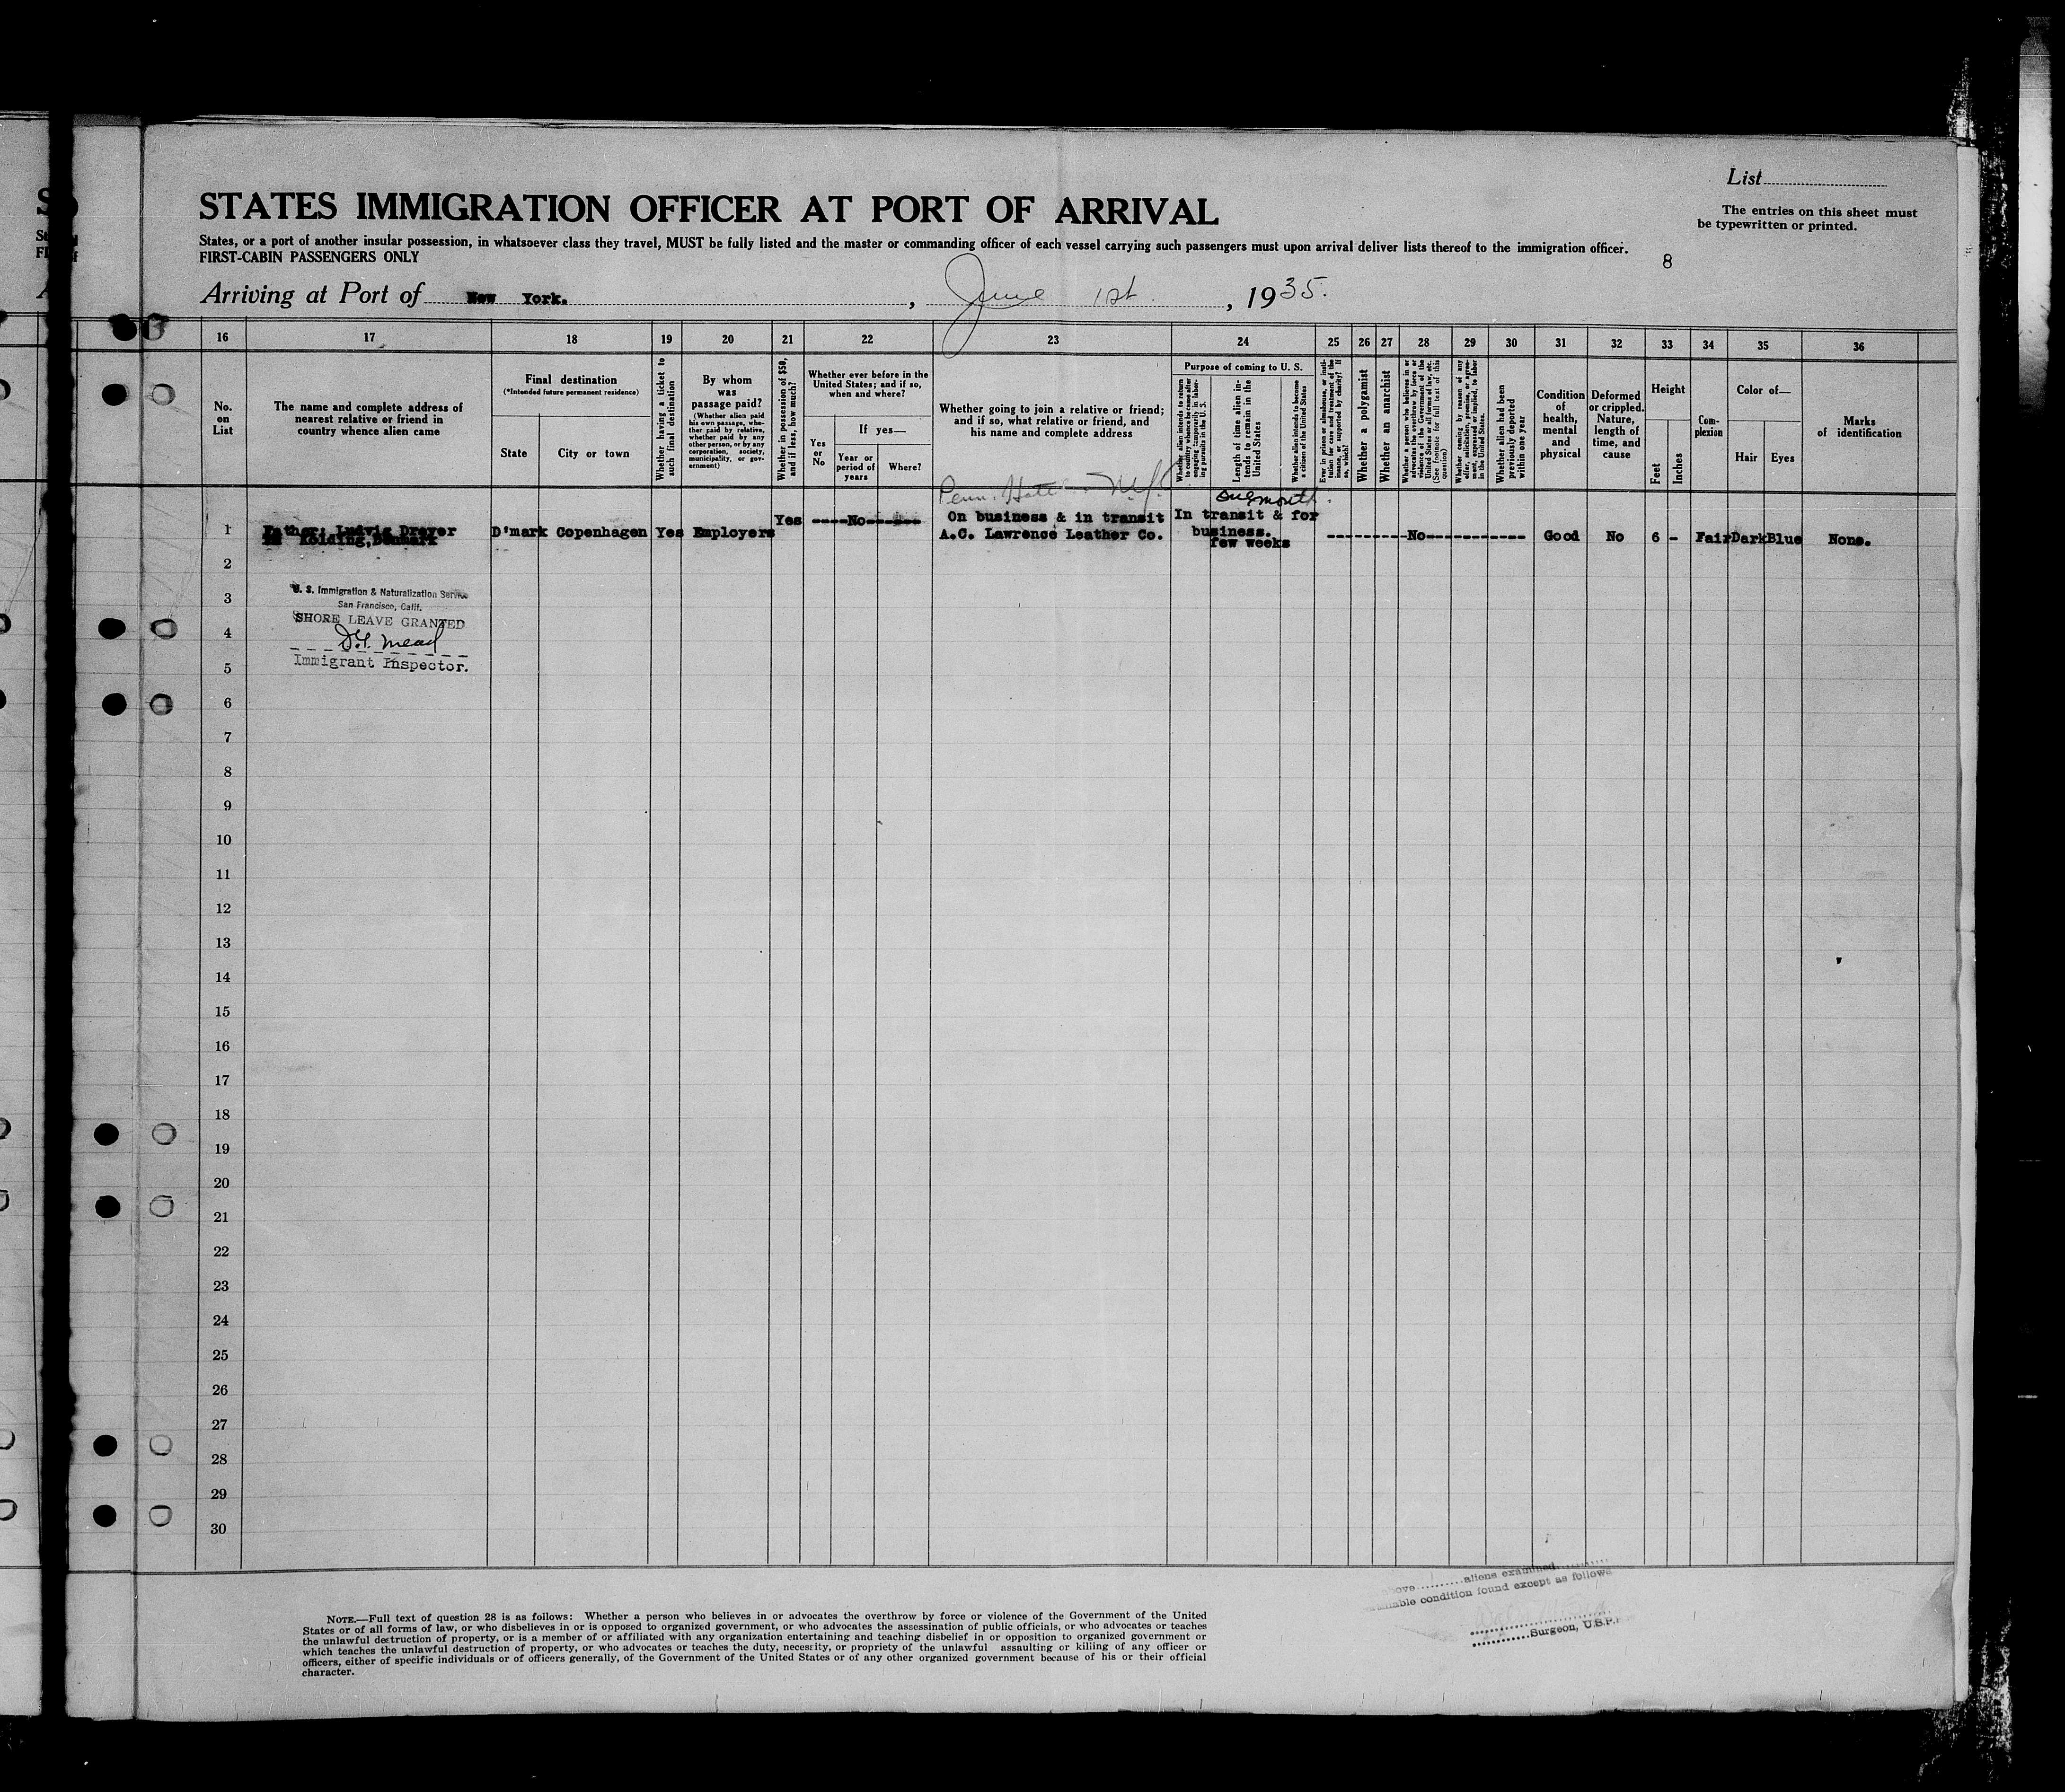 List
STATES IMMIGRATION OFFICER AT PORT OF ARRIVAL
The entries on this sheet must
be typewritten or printed.
States, or a port of another insular possession, in whatsoever class they travel, MUST be fully listed and the master or commanding officer of each vessel carrying such passengers must upon arrival deliver lists thereof to the immigration officer.
FIRST-CABIN PASSENGERS ONLY
8
Arriving at Port of New York. , June 1st , 1935.
16 17 18 19 20 21 22 23 24 25 26 27 28 29 30 31 32 33 34 35 36
No.
on
List
The name and complete address of
nearest relative or friend in
country whence alien came
Final destination
(*Intended future permanent residence)
State
City or town
Whether having a ticket to
such final destination
By whom
was
passage paid?
(Whether alien paid
his own passage, whe-
ther paid by relative,
whether paid by any
other person, or by any
corporation, society,
municipality, or gov-
ernment)
Whether in possession of $50,
and if less, how much?
Whether ever before in the
United States; and if so,
when and where?
Yes
or
No
If yes—
Year or
period of
years
Where?
Whether going to join a relative or friend;
and if so, what relative or friend, and
his name and complete address
Purpose of coming to U. S.
Whether alien intends to return
to country whence he came after
engaging temporarily in labor-
ing pursuits in the U.S.
Length of time alien in-
tends to remain in the
United States
Whether alien intends to become
a citizen of the United States
Ever in prison or almshouse, or insti-
tution for care and treatment of the
insane, or supported by charity? If
so, which?
Whether a polygamist
Whether an anarchist
Whether a person who believes in or
advocates the overthrow by force or
violence of the Government of the
United States or all forms of law, etc.
(See footnote for full text of this
question)
Whether coming by reason of any
offer, solicitation, promise, or agree-
ment, expressed or implied, to labor
in the United States.
Whether alien had been
previously deported
within one year
Condition
of
health,
mental
and
physical
Deformed
or crippled.
Nature,
length of
time, and
cause
Height
Feet
Inches
Com-
plexion
Color of—
Hair
Eyes
Marks
of identification
Penn. Hotel - N.Y.
one month.
1 Father: Ludvig Dreyer D'mark Copenhagen Yes Employers Yes ----No------ On business & in transit In transit & for
Kolding, Denmark A.C. Lawrence Leather Co. business. ---------No----------- Good No 6 - Fair Dark Blue None.
few weeks
2
3
U. S. Immigration & Naturalization Service
San Francisco, Calif.
SHORE LEAVE GRANTED
4
Mead
Immigrant Inspector.
5
6
7
8
9
10
11
12
13
14
15
16
17
18
19
20
21
22
23
24
25
26
27
28
29
30
aliens examined
condition found except as follows
Surgeon, U.S.P.
NOTE.—Full text of question 28 is as follows: Whether a person who believes in or advocates the overthrow by force or violence of the Government of the United
States or of all forms of law, or who disbelieves in or is opposed to organized government, or who advocates the assassination of public officials, or who advocates or teaches
the unlawful destruction of property, or is a member of or affiliated with any organization entertaining and teaching disbelief in or opposition to organized government or
which teaches the unlawful destruction of property, or who advocates or teaches the duty, necessity, or propriety of the unlawful assaulting or killing of any officer or
officers, either of specific individuals or of officers generally, of the Government of the United States or of any other organized government because of his or their official
character.